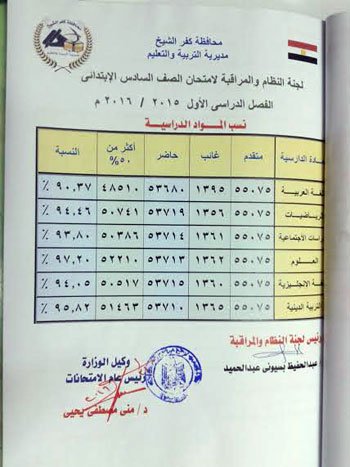 محافظة كفر الشيخ
مديرية التربية والتعليم
لجنة النظام والمراقبة لامتحان الصف السادس الإبتدائى
الفصل الدراسى الأول ٢٠١٥ / ٢٠١٦ م
نسب المواد الدراسية
ادة الدارسية متقدم غائب حاضر أكثر من ٥٠% النسبة
لغة العربية ٥٥٠٧٥ ١٣٩٥ ٥٣٦٨٠ ٤٨٥١٠ ٩٠.٣٧ ٪
لرياضيات ٥٥٠٧٥ ١٣٥٦ ٥٣٧١٩ ٥٠٧٤١ ٩٤.٤٦ ٪
راسات الاجتماعية ٥٥٠٧٥ ١٣٦١ ٥٣٧١٤ ٥٠٣٨٦ ٩٣.٨٠ ٪
العلوم ٥٥٠٧٥ ١٣٦٢ ٥٣٧١٣ ٥٢٢١٠ ٩٧.٢٠ ٪
غة الإنجليزية ٥٥٠٧٥ ١٣٦٥ ٥٣٧١٠ ٥٠٥١٧ ٩٤.٠٥ ٪
التربية الدينية ٥٥٠٧٥ ١٣٦٥ ٥٣٧١٠ ٥١٤٦٣ ٩٥.٨٢ ٪
رئيس لجنة النظام والمراقبة
عبدالحفيظ بسيونى عبدالحميد
وكيل الوزارة
رئيس عام الامتحانات
د / منى مصطفى يحيى